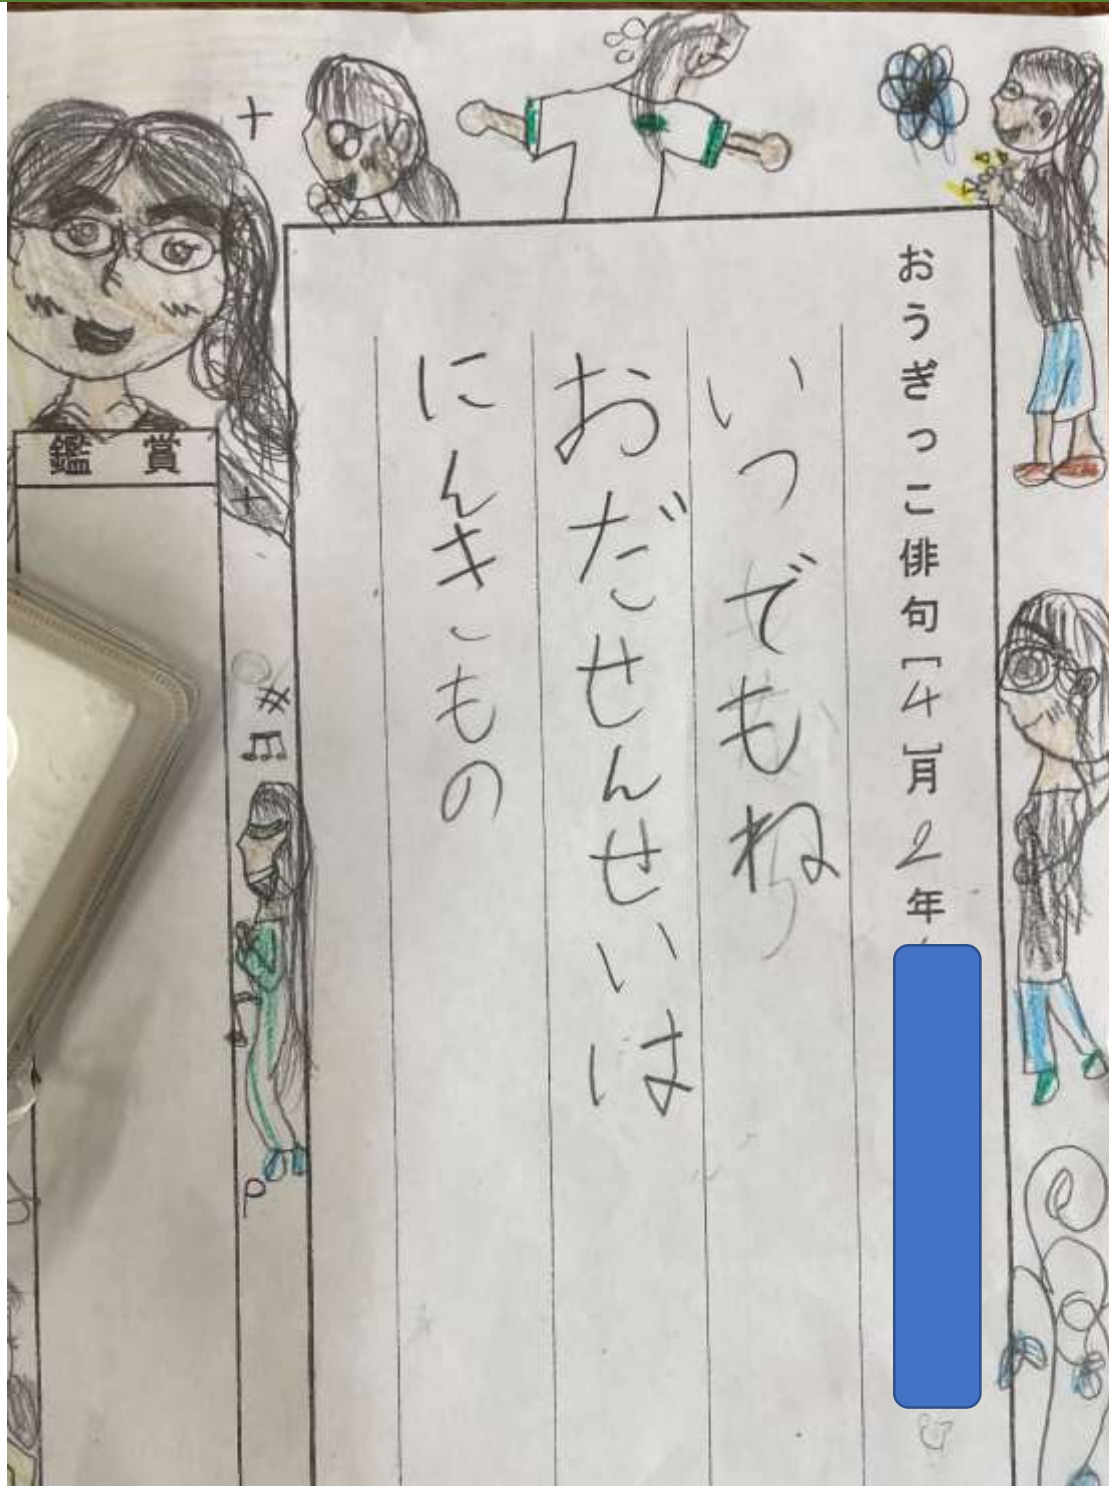 おうぎっこ俳句[4]月2年
いつでもね
おだせんせいは
にんきもの
鑑賞